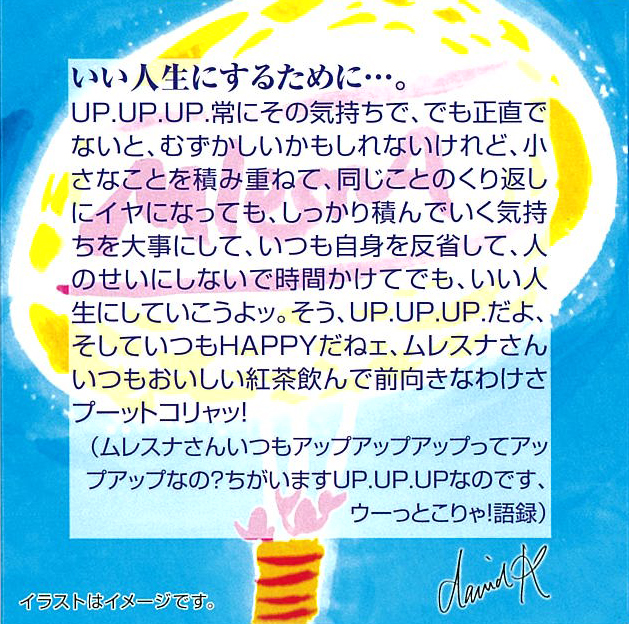 いい人生にするために…。
UP.UP.UP.常にその気持ちで、でも正直で
ないと、むずかしいかもしれないけれど、小
さなことを積み重ねて、同じことのくり返し
にイヤになっても、しっかり積んでいく気持
ちを大事にして、いつも自身を反省して、人
のせいにしないで時間かけてでも、いい人
生にしていこうよッ。そう、UP.UP.UP.だよ、
そしていつもHAPPYだねェ、ムレスナさん
いつもおいしい紅茶飲んで前向きなわけさ
プーットコリャッ!
(ムレスナさんいつもアップアップアップってアッ
プアップなの?ちがいますUP.UP.UPなのです、
ウーっとこりゃ!語録)
イラストはイメージです。